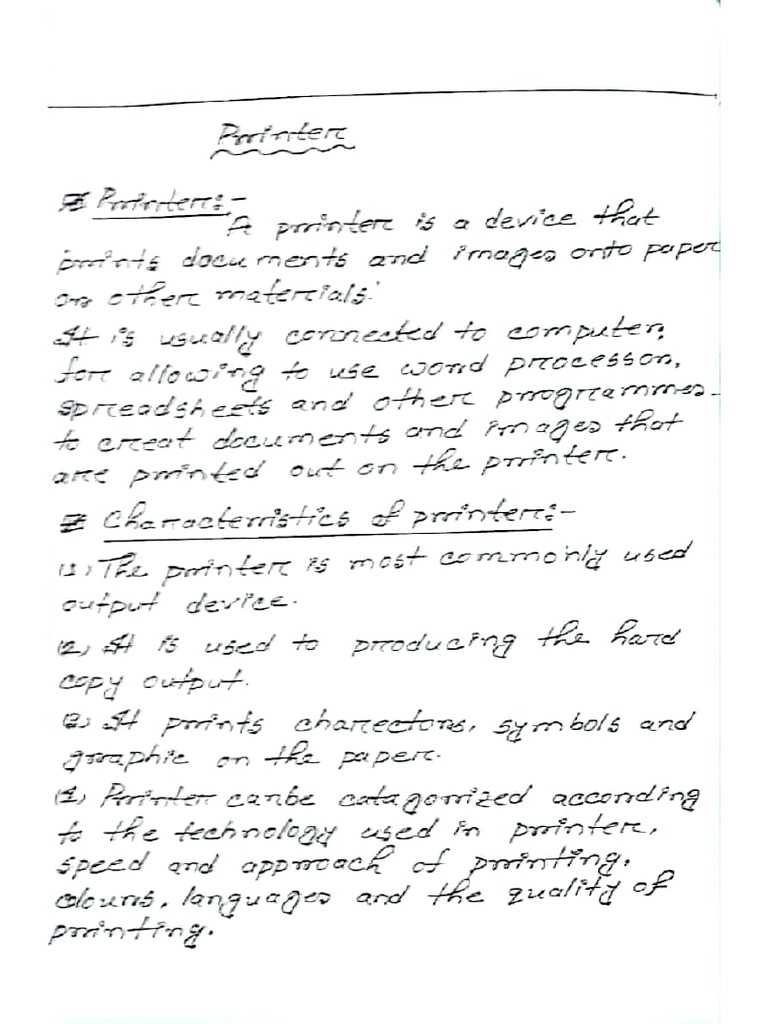 Printer
Printer:-
A printer is a device that
prints documents and images onto paper
or other materials.
It is usually connected to computer,
for allowing to use word processor,
spreadsheets and other programmes
to creat documents and images that
are printed out on the printer.
Characteristics of printer:-
(1) The printer is most commonly used
output device.
(2) It is used to producing the hard
copy output.
(3) It prints charectors, symbols and
graphic on the paper.
(4) Printer canbe catagorrized according
to the technology used in printer,
speed and approach of printing,
colours, languages and the quality of
printing.